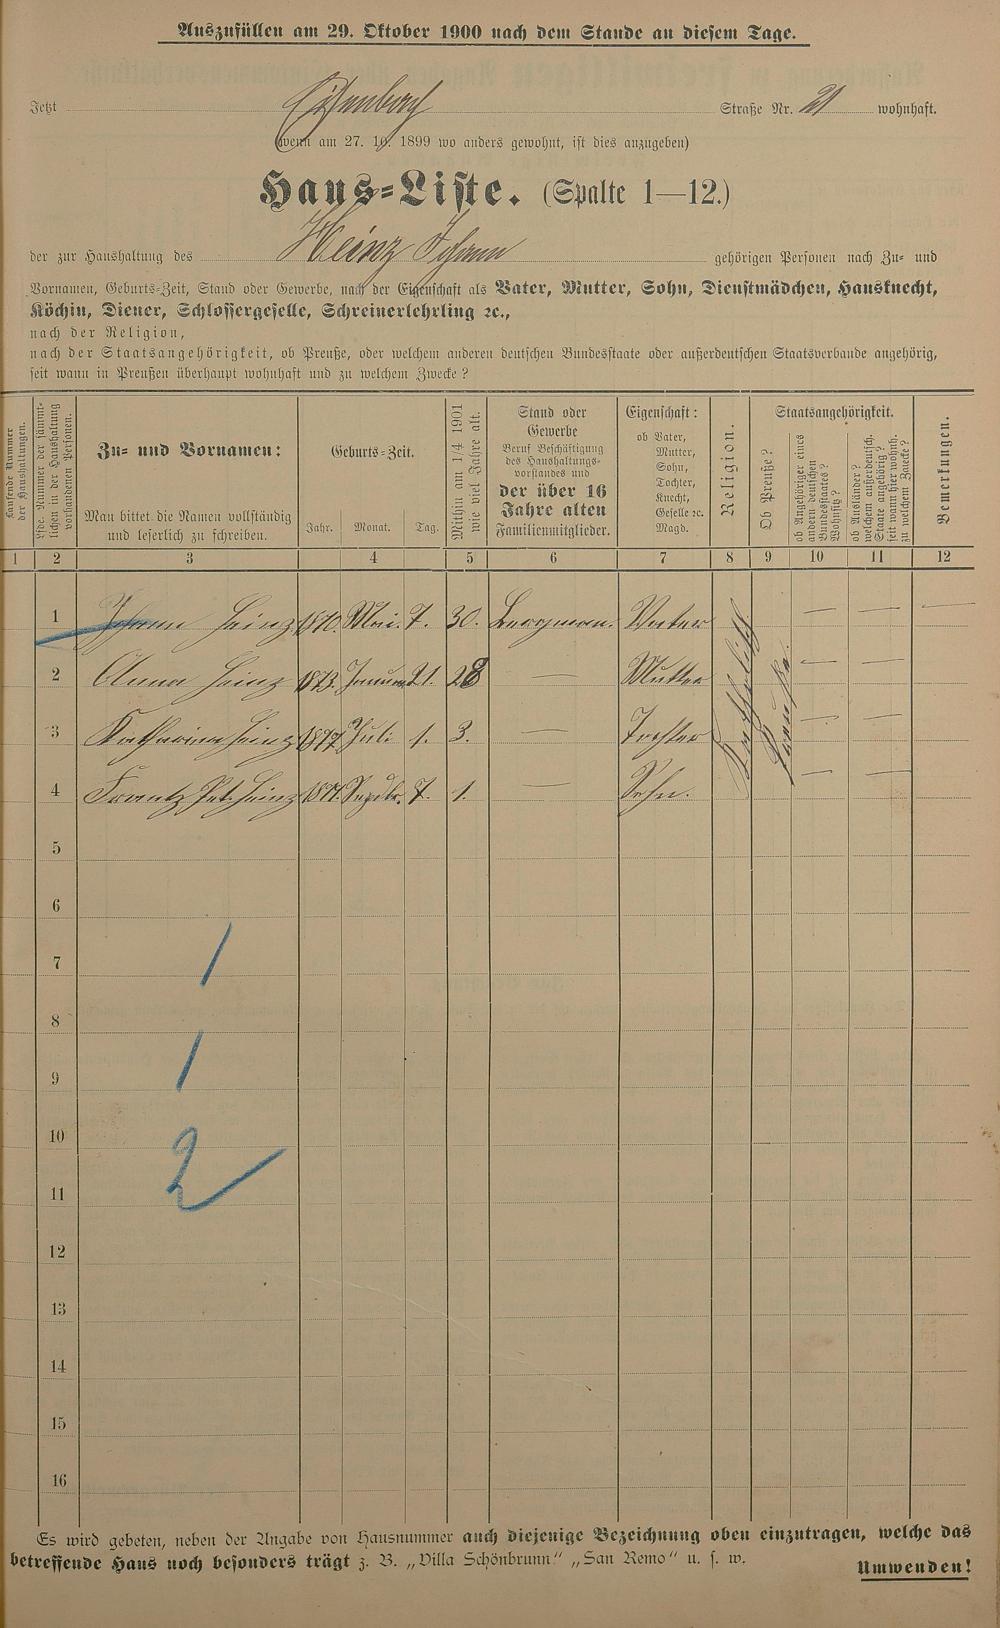 Auszufüllen am 29. Oktober 1900 nach dem Stande an diesem Tage.
Jetzt Eisenbach Straße Nr. 21 wohnhaft.
(wenn am 27. 10. 1899 wo anders gewohnt, ist dies anzugeben)
Haus-Liste. (Spalte 1—12.)
der zur Haushaltung des Heinz Johann gehörigen Personen nach Zu- und
Vornamen, Geburts-Zeit, Stand oder Gewerbe, nach der Eigenschaft als Vater, Mutter, Sohn, Dienstmädchen, Hausknecht,
Köchin, Diener, Schlossergeselle, Schreinerlehrling ꝛc.,
nach der Religion,
nach der Staatsangehörigkeit, ob Preuße, oder welchem anderen deutschen Bundesstaate oder außerdeutschen Staatsverbande angehörig,
seit wann in Preußen überhaupt wohnhaft und zu welchem Zwecke?
Laufende Nummer
der Haushaltungen.
Lfde. Nummer der sämmt-
lichen in der Haushaltung
vorhandenen Personen.
Zu- und Vornamen:
Man bittet die Namen vollständig
und leserlich zu schreiben.
Geburts-Zeit.
Jahr. Monat. Tag.
Mithin am 1/4 1901
wie viel Jahre alt.
Stand oder
Gewerbe
Beruf Beschäftigung
des Haushaltungs-
vorstandes und
der über 16
Jahre alten
Familienmitglieder.
Eigenschaft:
ob Vater,
Mutter,
Sohn,
Tochter,
Knecht,
Geselle ꝛc.
Magd.
Religion.
Staatsangehörigkeit.
Ob Preuße?
ob Angehöriger eines
andern deutschen
Bundesstaates?
Wohnsitz?
ob Ausländer?
welchem außerdeutsch.
Staate angehörig?
seit wann hier wohnh.
zu welchem Zwecke?
Bemerkungen.
1 2 3 4 5 6 7 8 9 10 11 12
1 Johann Heinz 1870. Mai. 7. 30. Bergmann. Vater — — —
2 Anna Heinz 1873. Januar 21. 28 — Mutter — —
3 Katharina Heinz 1897 Juli 1. 3. — Tochter — —
4 Frantz Pet. Heinz Sepdbr. 7. 1. — Sohn. — —
Katholisch
Preuße.
5
6
7
8
9
10
11
12
13
14
15
16
1
1
2
Es wird gebeten, neben der Angabe von Hausnummer auch diejenige Bezeichnung oben einzutragen, welche das
betreffende Haus noch besonders trägt z. B. „Villa Schönbrunn“ „San Remo“ u. s. w.
Umwenden!